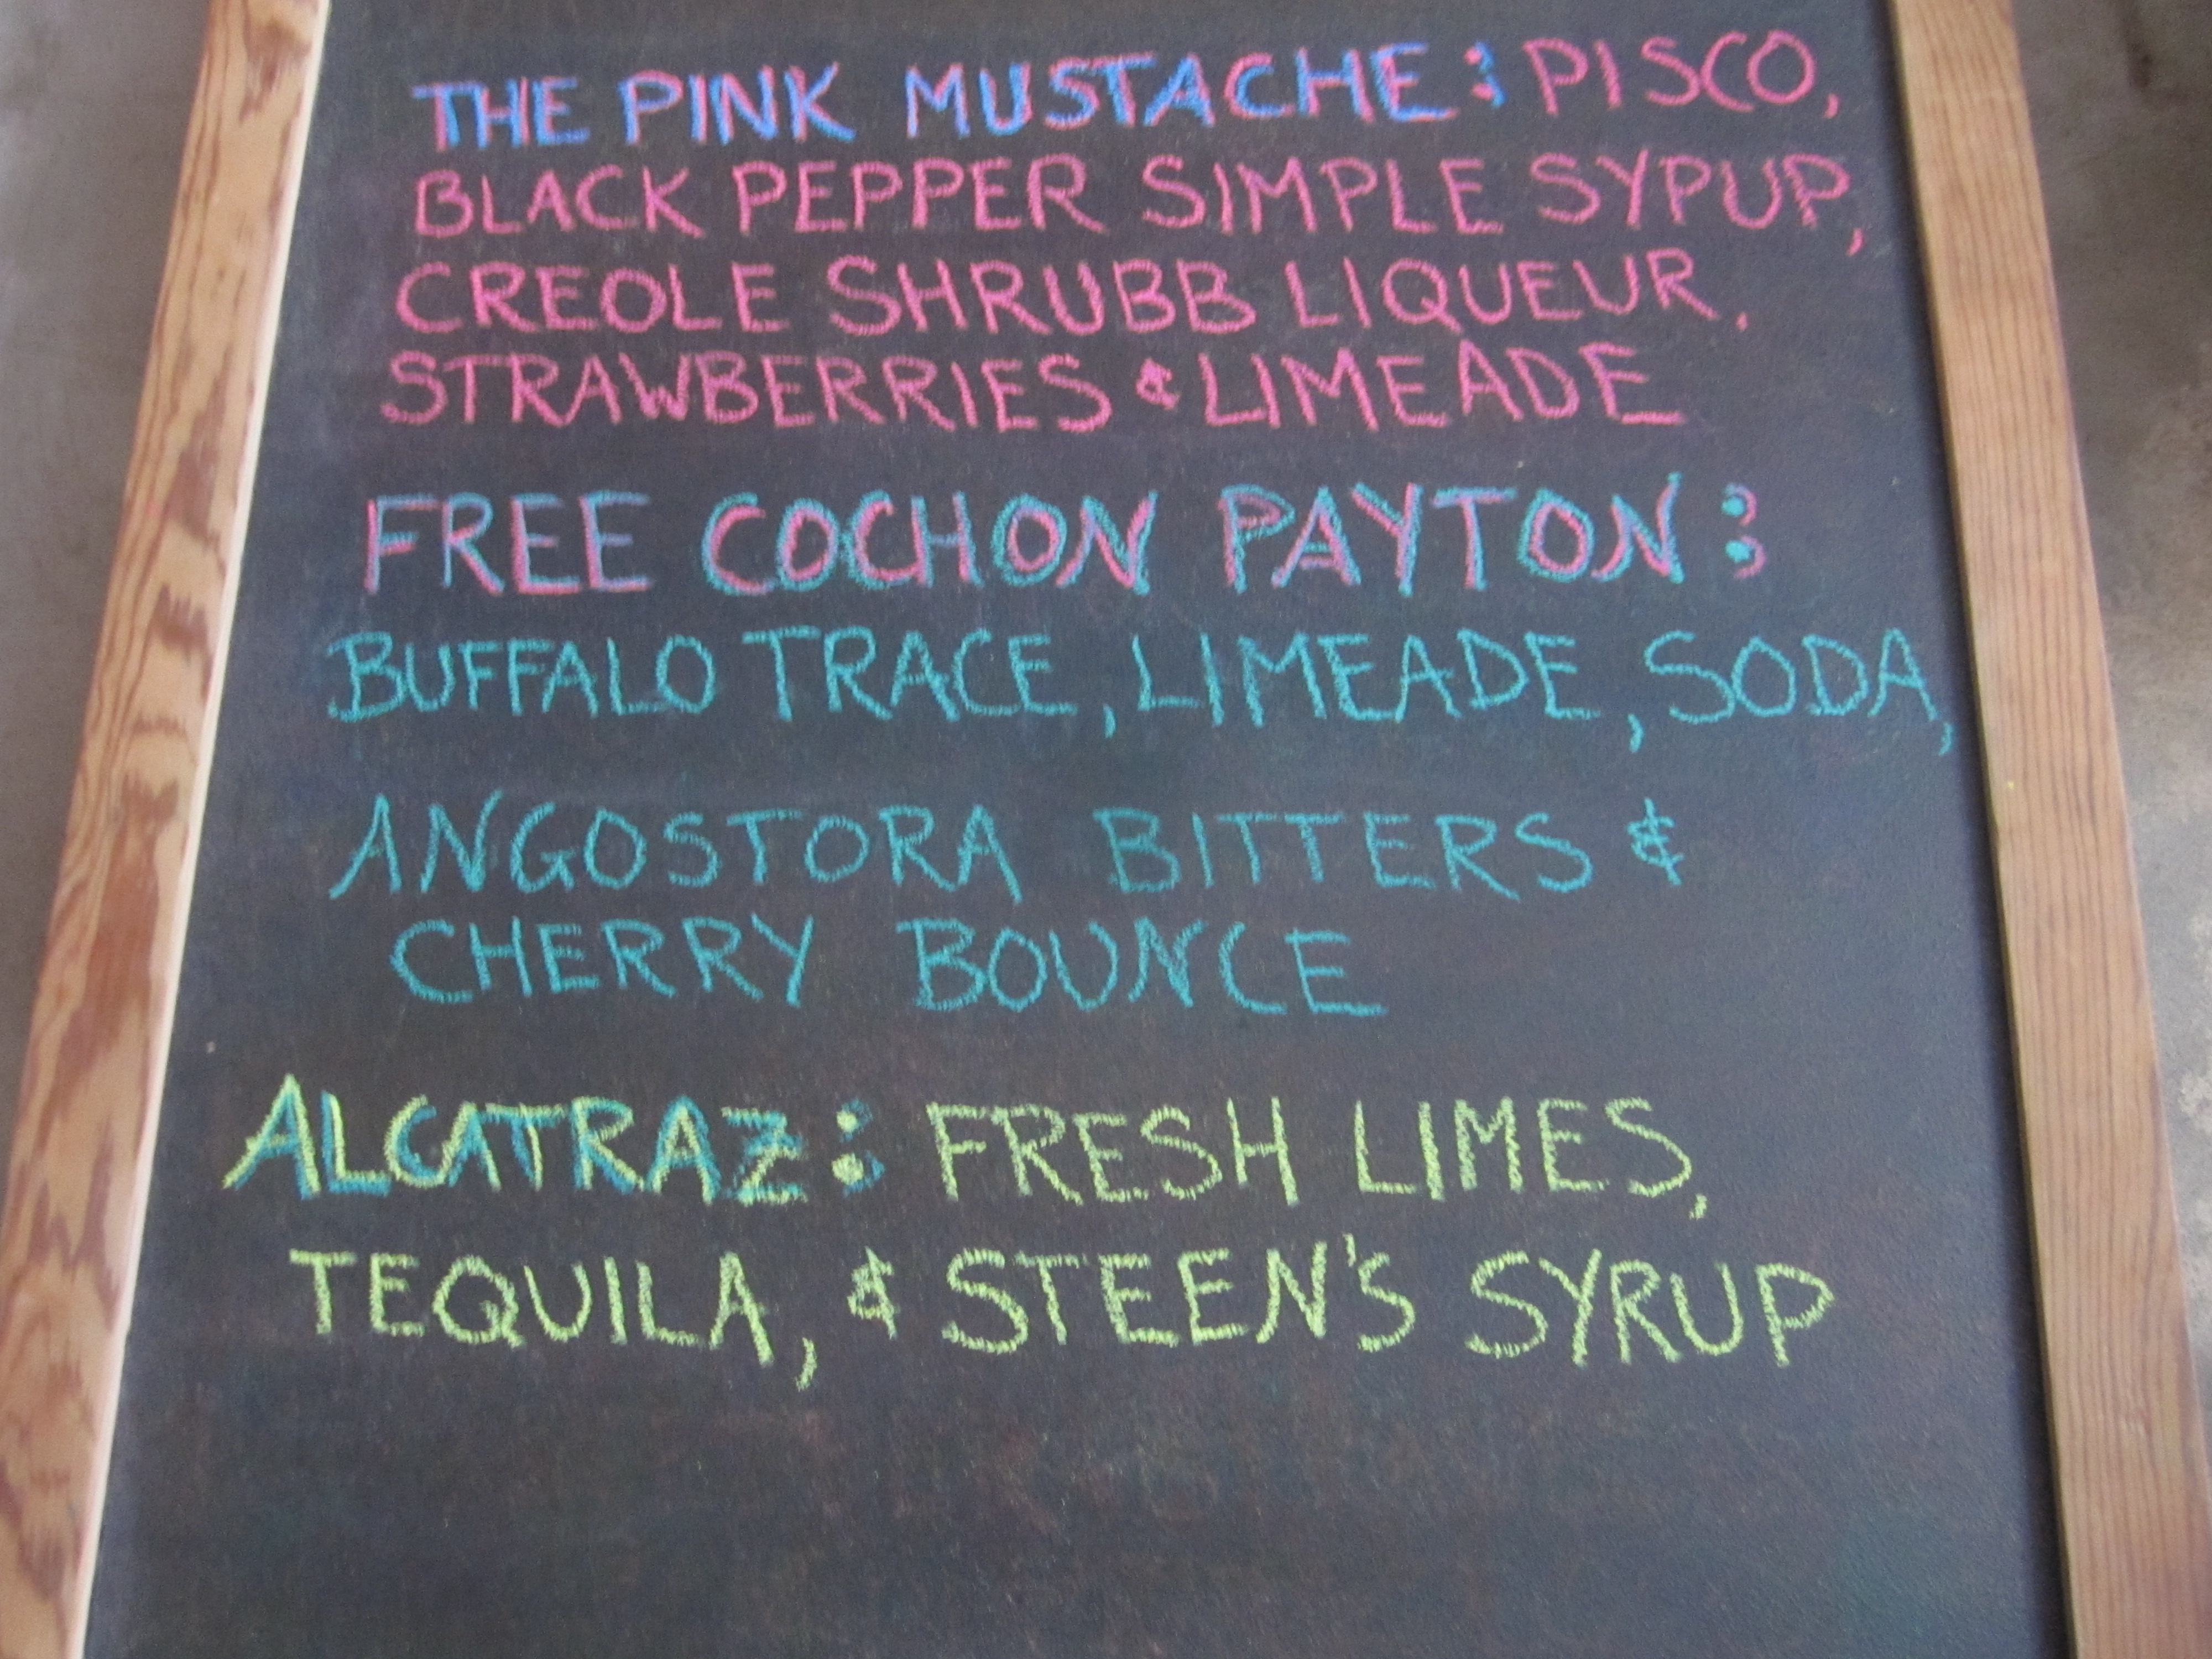 THE PINK MUSTACHE: PISCO,
BLACK PEPPER SIMPLE SYPUP,
CREOLE SHRUBB LIQUEUR,
STRAWBERRIES & LIMEADE
FREE COCHON PAYTON:
BUFFALO TRACE, LIMEADE, SODA,
ANGOSTORA BITTERS &
CHERRY BOUNCE
ALCATRAZ: FRESH LIMES,
TEQUILA, & STEEN'S SYRUP